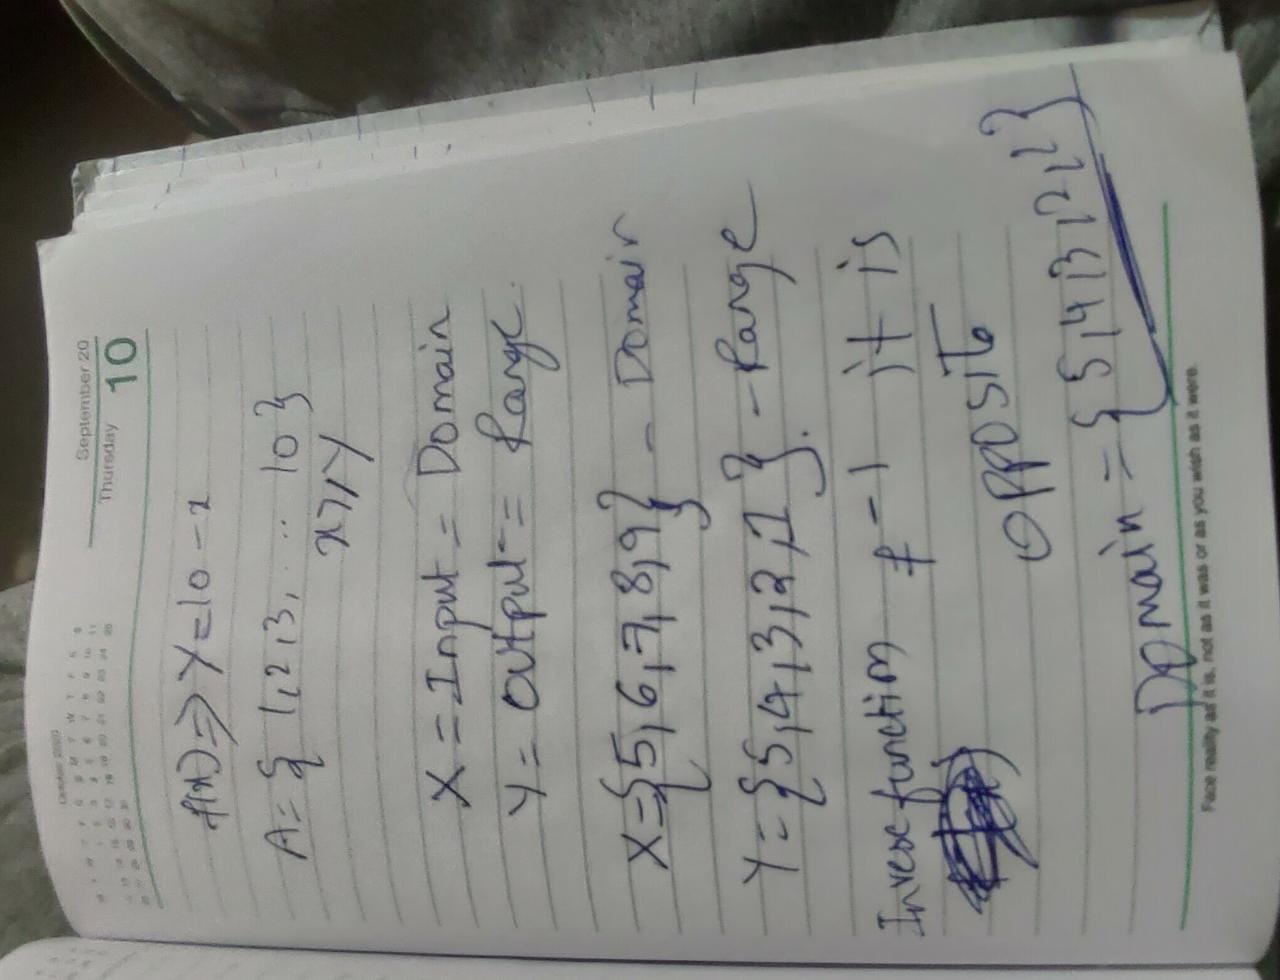 September 20
Thursday 10
October 2020
f(x) => Y = 10 - x
A = { 1, 2, 3, ... 10 }
x >, Y
X = Input = Domain
Y = Output = Range.
X = {5, 6, 7, 8, 9} - Domain
Y = {5, 4, 3, 2, 1} - Range
Inverse function f -1 it is
OPPOSITE
Domain = {5, 4, 3, 2, 1}
Face reality as it is, not as it was or as you wish as it were.